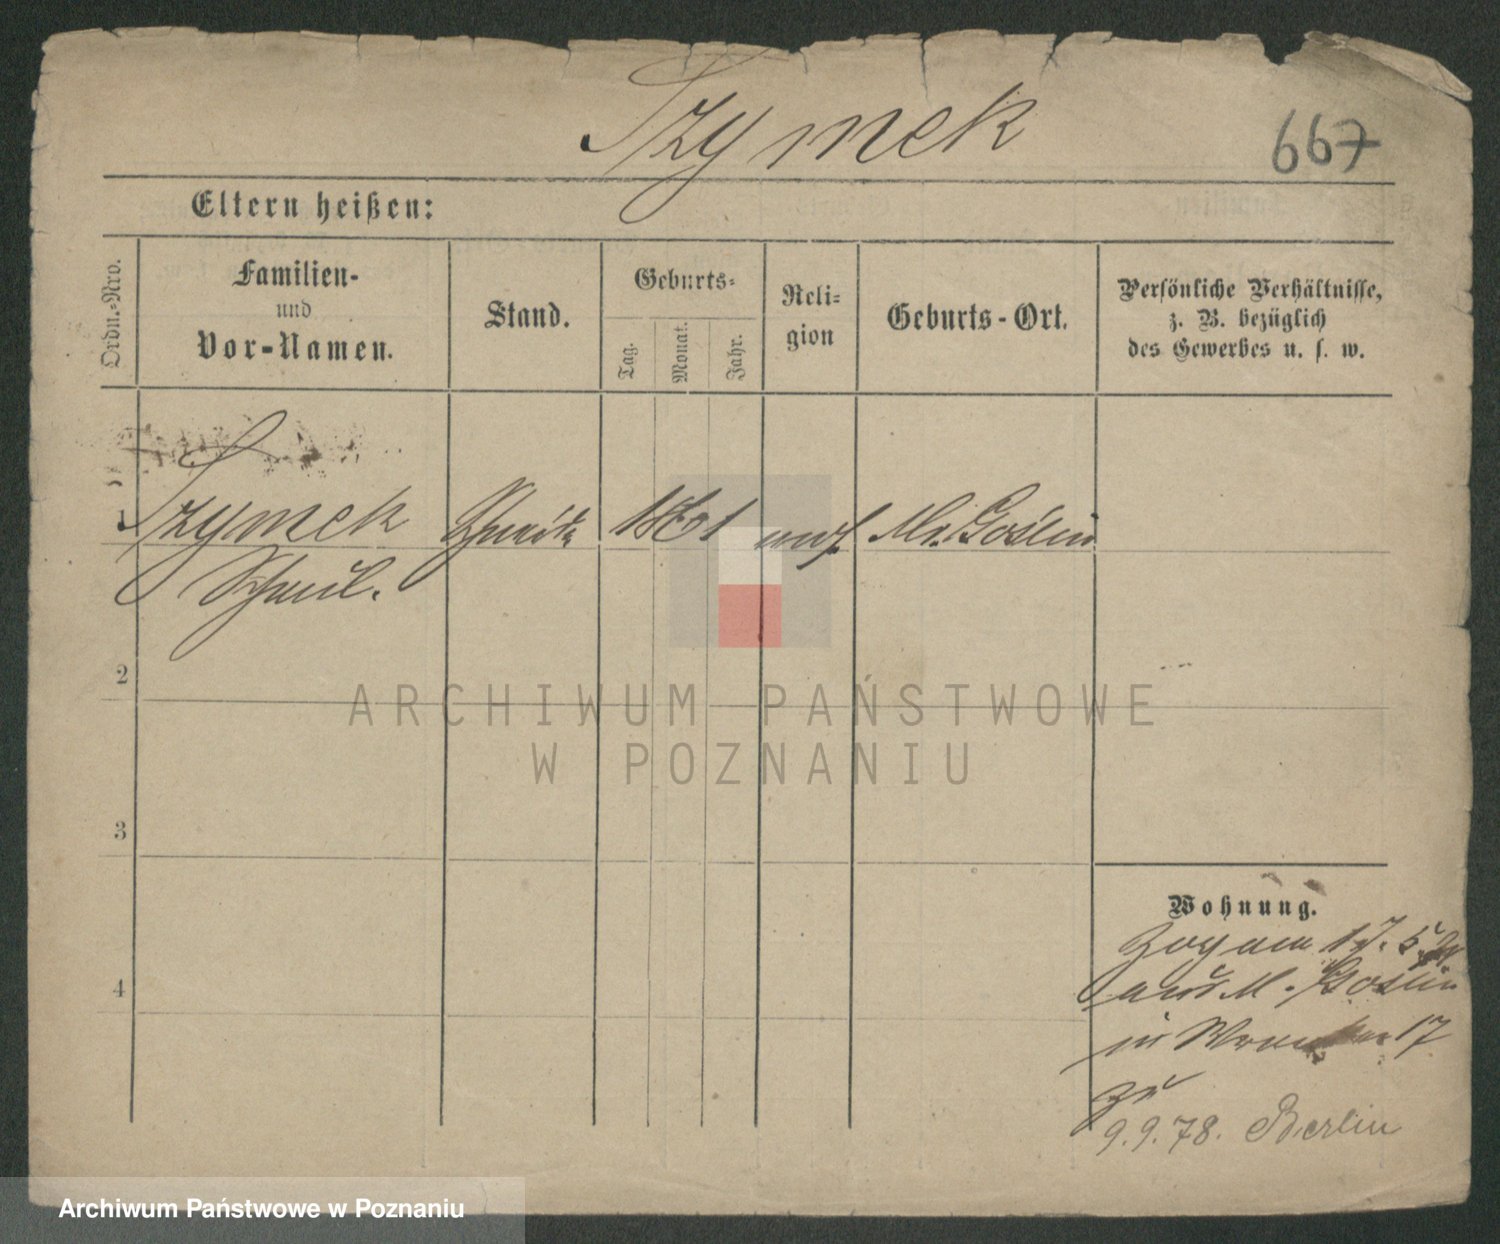 Szymek
667
Eltern heißen:
Ordn.-Nro.
Familien-
und
Vor-Namen.
Stand.
Geburts-
Tag.
Monat.
Jahr.
Reli-
gion
Geburts-Ort.
Persönliche Verhältnisse,
z. B. bezüglich
des Gewerbes u. s. w.
1 Szymek 1861 Mr. Goslin
Schmul.
2
ARCHIWUM PAŃSTWOWE
W POZNANIU
3
Wohnung.
Zog am 17. 5.
aus M. Goslin
in 17
zu
4
9. 9. 78. Berlin
Archiwum Państwowe w Poznaniu